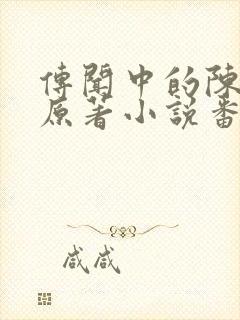 傳聞中的陳
原著小說番
咸咸